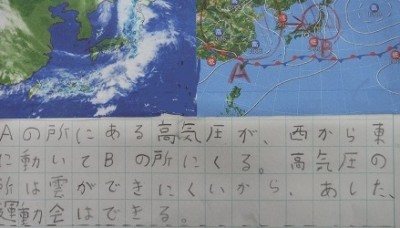 A
B
Aの所にある高気圧が、西から東
に動いてBの所にくる。高気圧の
所は雲ができにくいから、あした、
運動会はできる。